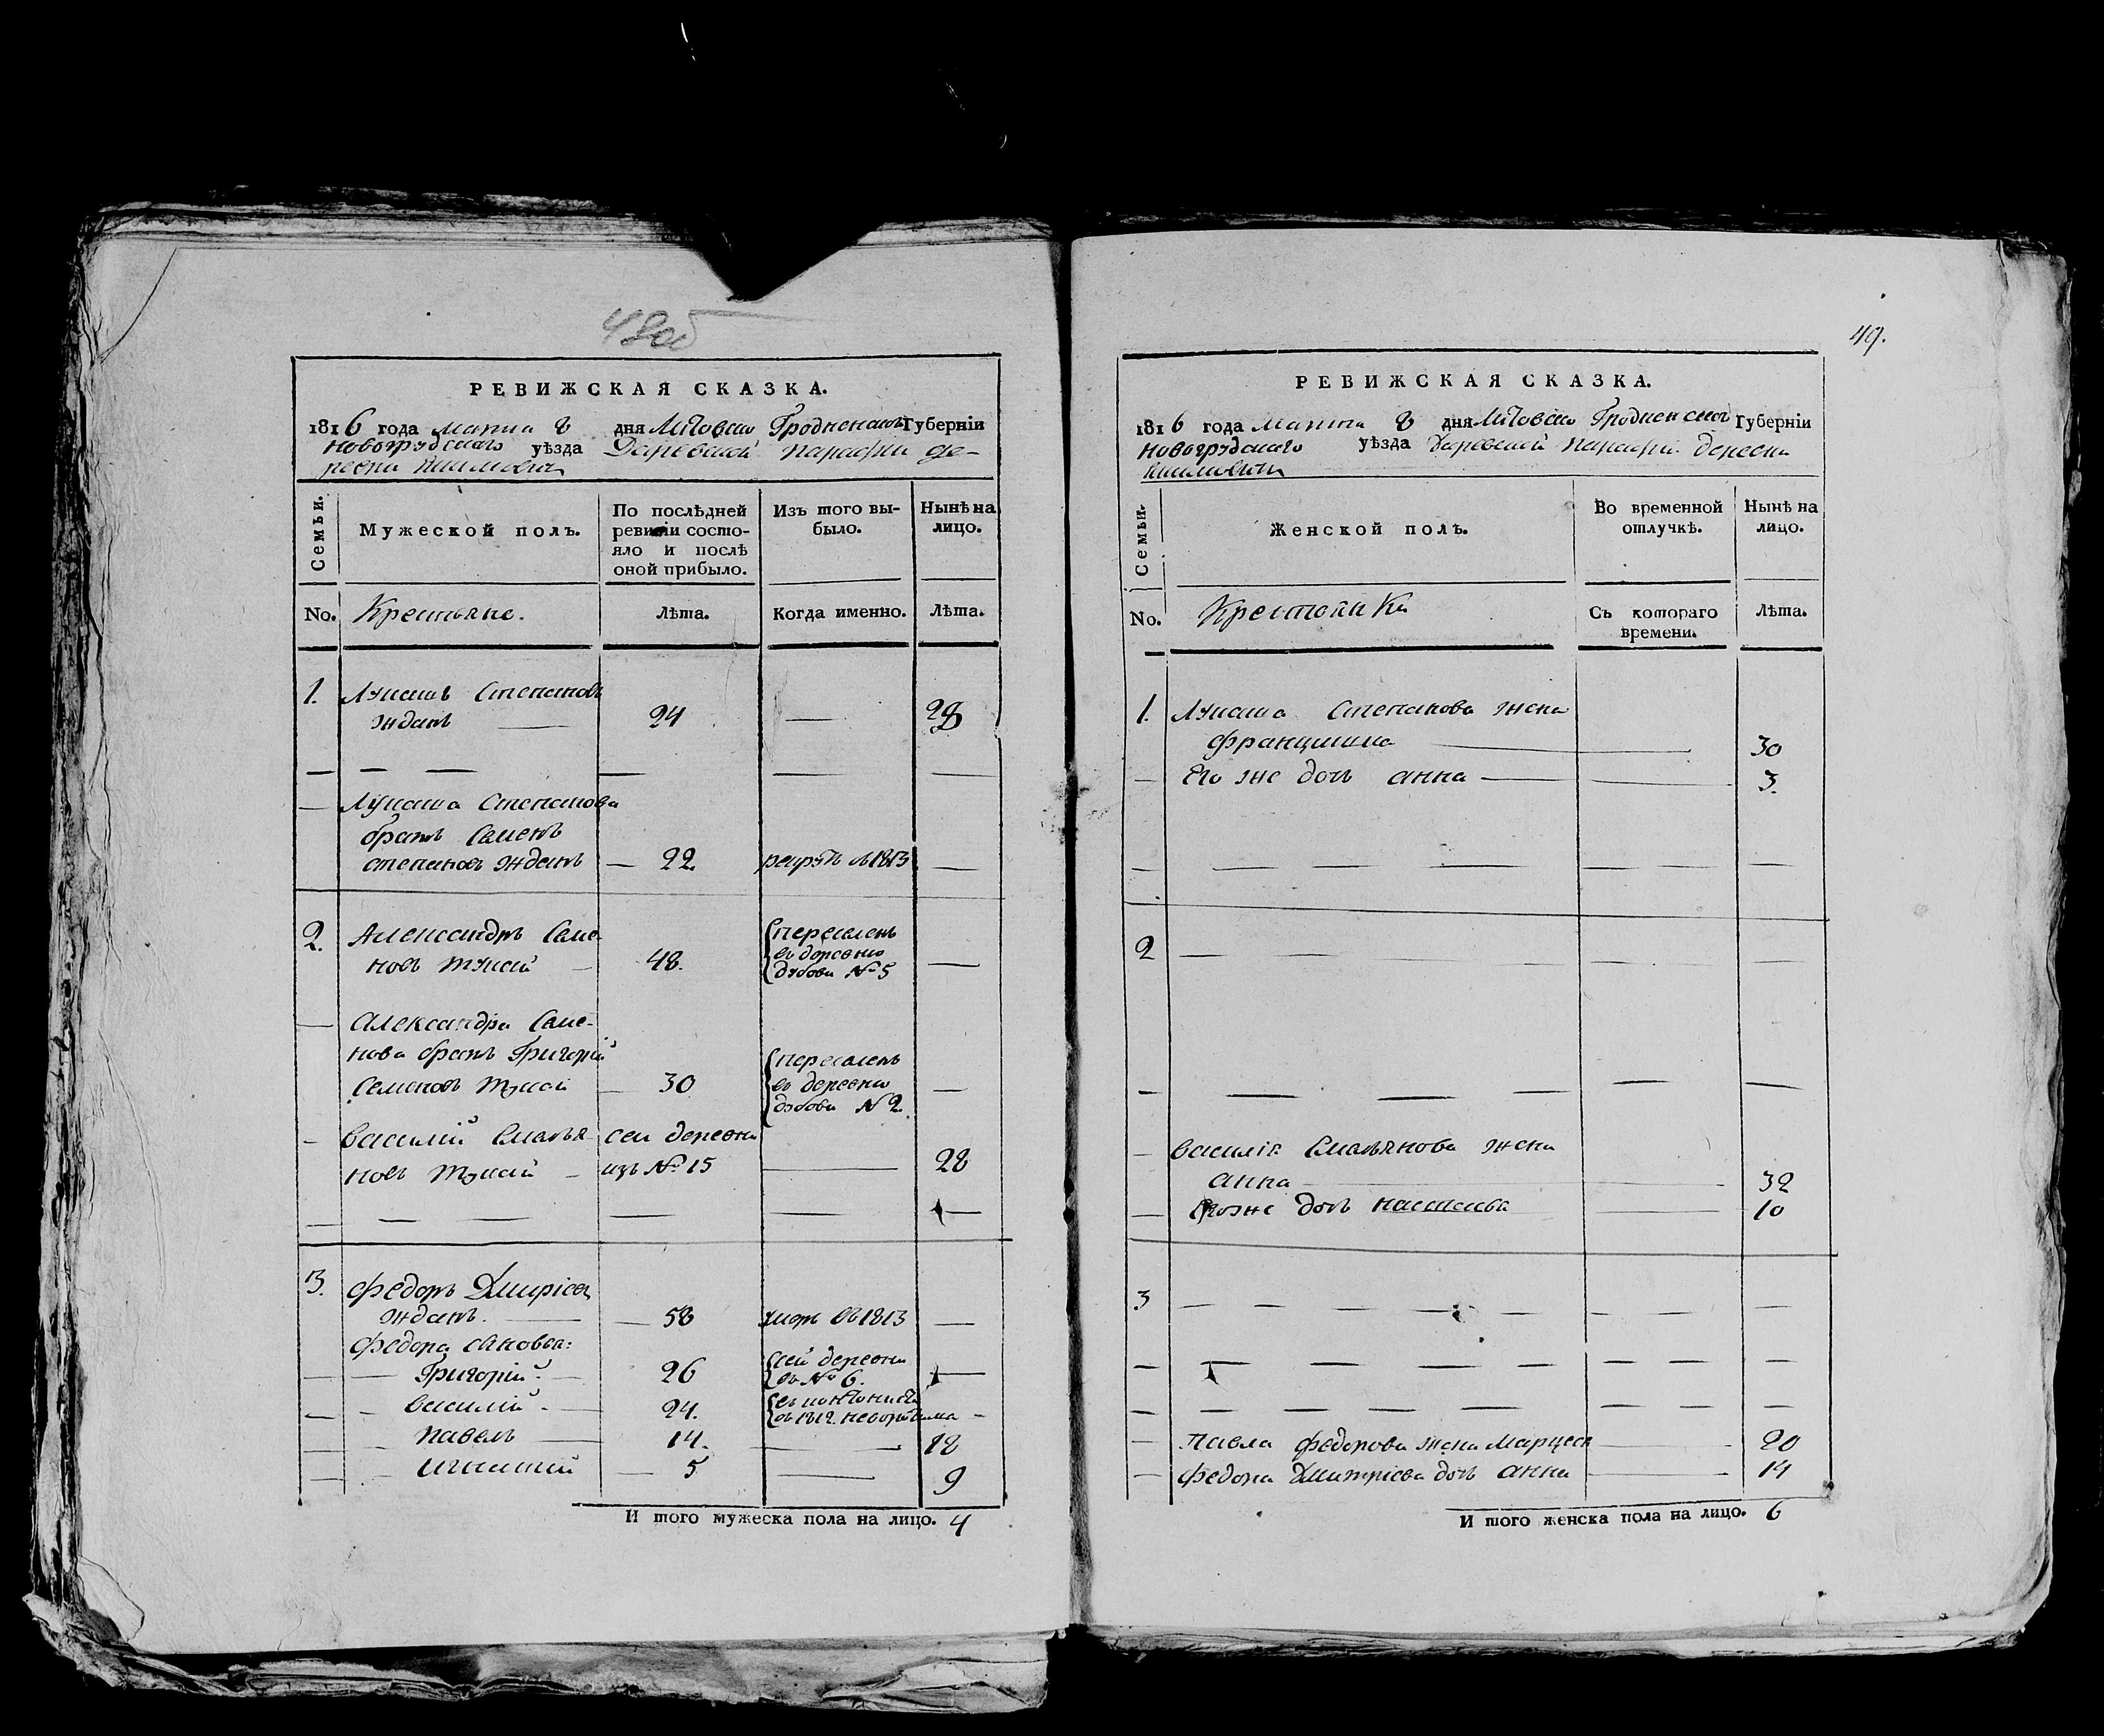 48об
РЕВИЖСКАЯ СКАЗКА.
1816 года марта 8 дня Литовско Гродненской Губерніи
Новогрудскаго уѣзда Даревской парафіи де-
ревни
Семьи.
Мужеской полъ.
По послѣдней
ревизіи состо-
яло и послѣ
оной прибыло.
Изъ того вы-
было.
Нынѣ на
лицо.
No.
Крестьяне.
Лѣта.
Когда именно.
Лѣта.
1. Лукашъ Степановъ
Жданъ — 24 — 28
— Лукаша Степанова
братъ Семенъ
степановъ Жданъ — 22 рекрутъ в 1813 —
2. Александръ Семе-
новъ — 48. —
переселенъ
въ деревню
дубови № 5
— Александра Семе-
нова братъ Григорій
Семеновъ — 30 —
переселенъ
въ деревню
дубови № 2.
— Василий сей деревни
новъ — изъ № 15 — 28
3. Федоръ Дмитріев
Жданъ. — 58 умеръ въ 1813 —
Федора сыновья:
— Григорій. — 26 сей деревни въ № 6. —
— Василій. — 24. в 1812.
— Павелъ — 14. — 18
— Игнатий — 5 — 9
И того мужеска пола на лицо. 4
49.
РЕВИЖСКАЯ СКАЗКА.
1816 года марта 8 дня Литовско Гродненской Губерніи
Новогрудскаго уѣзда Даревской парафіи деревни
Семьи.
Женской полъ.
Во временной
отлучкѣ.
Нынѣ на
лицо.
No.
Крестьянки
Съ котораго
времени.
Лѣта.
1. Лукаша Степанова жена
Францишка — 30
— Его же дочь анна — 3.
2
— Василія жена
анна — 32
— Его же дочь настасья — 10
3
— Павла федорова жена — 20
— Федора Дмитріева дочь анна — 14
И того женска пола на лицо. 6